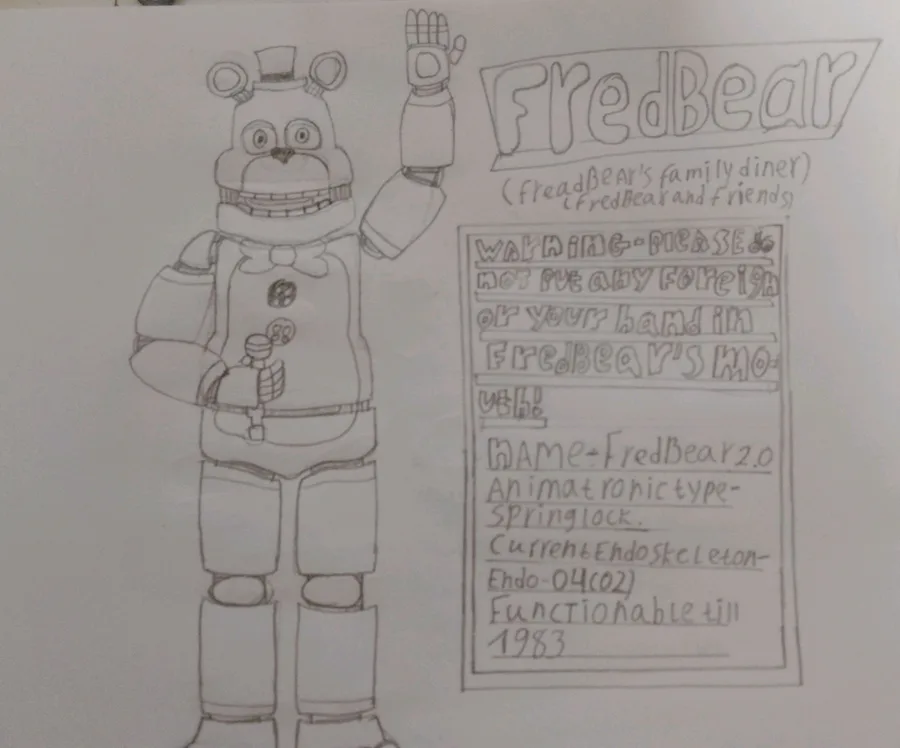 FredBear
(freadBEAr's family diner)
(fredBear and friends)
WARNING-PlEASE do
not put any foreign
or your hand in
FredBEAr's mo-
uth!
NAME-FredBear 2.0
Animatronic type-
springlock.
Current Endoskeleton-
Endo-04(02)
Functionable till
1983